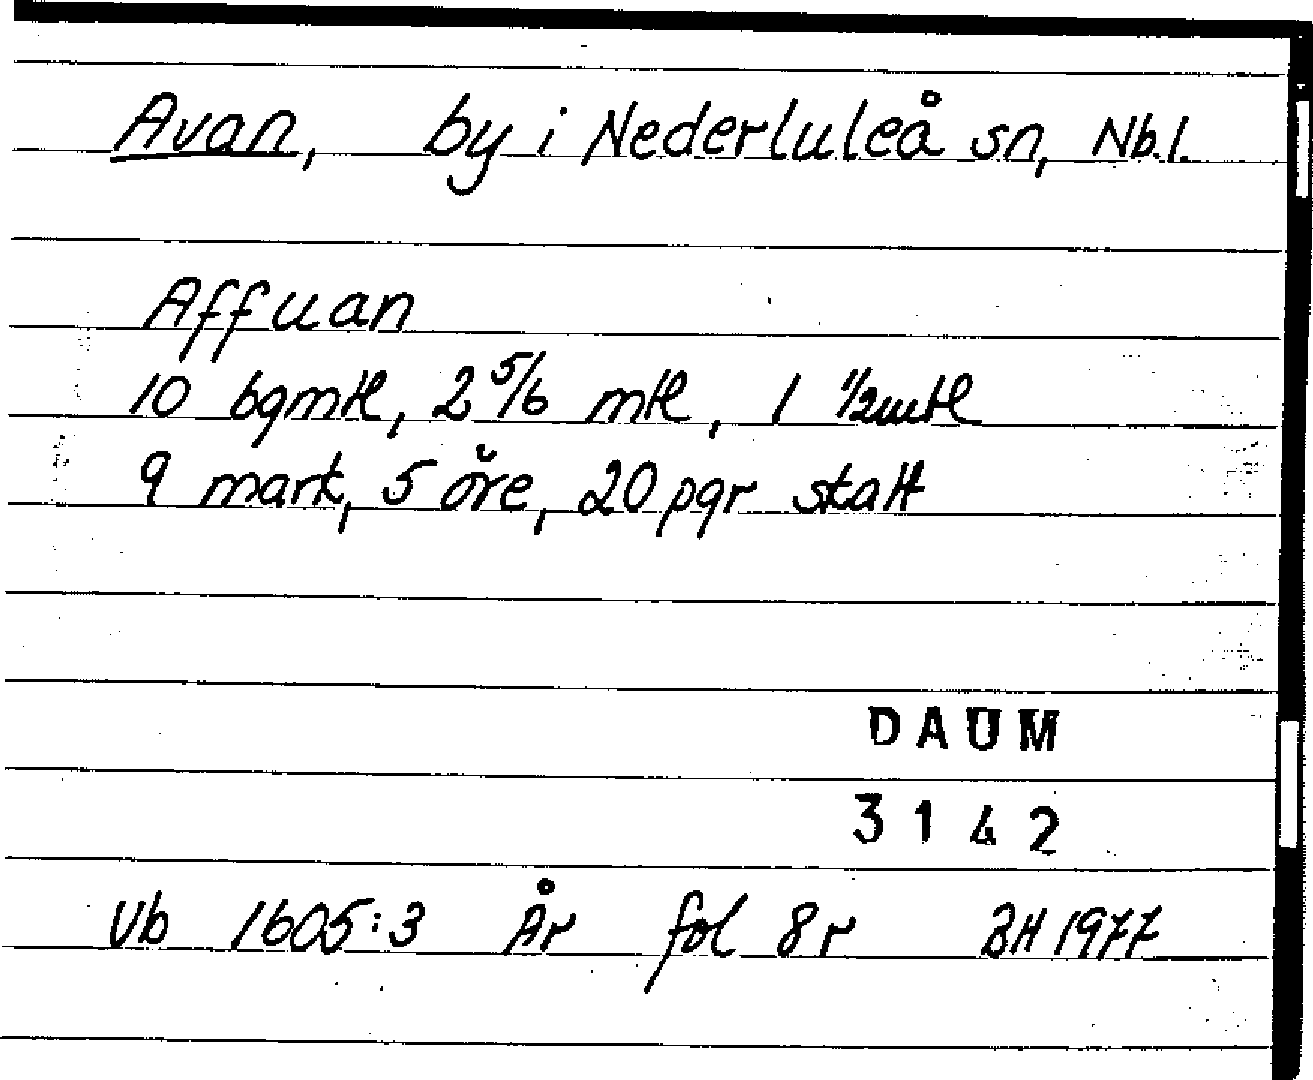 Avan, by i Nederluleå sn, Nb.l.
Affuan
10 bgmtl, 2 5/6 mtl, 1 1/2mtl
9 mark, 5 öre, 20 pgr skatt
DAUM
3142
Vb 1605:3 År fol 8r BH 1977